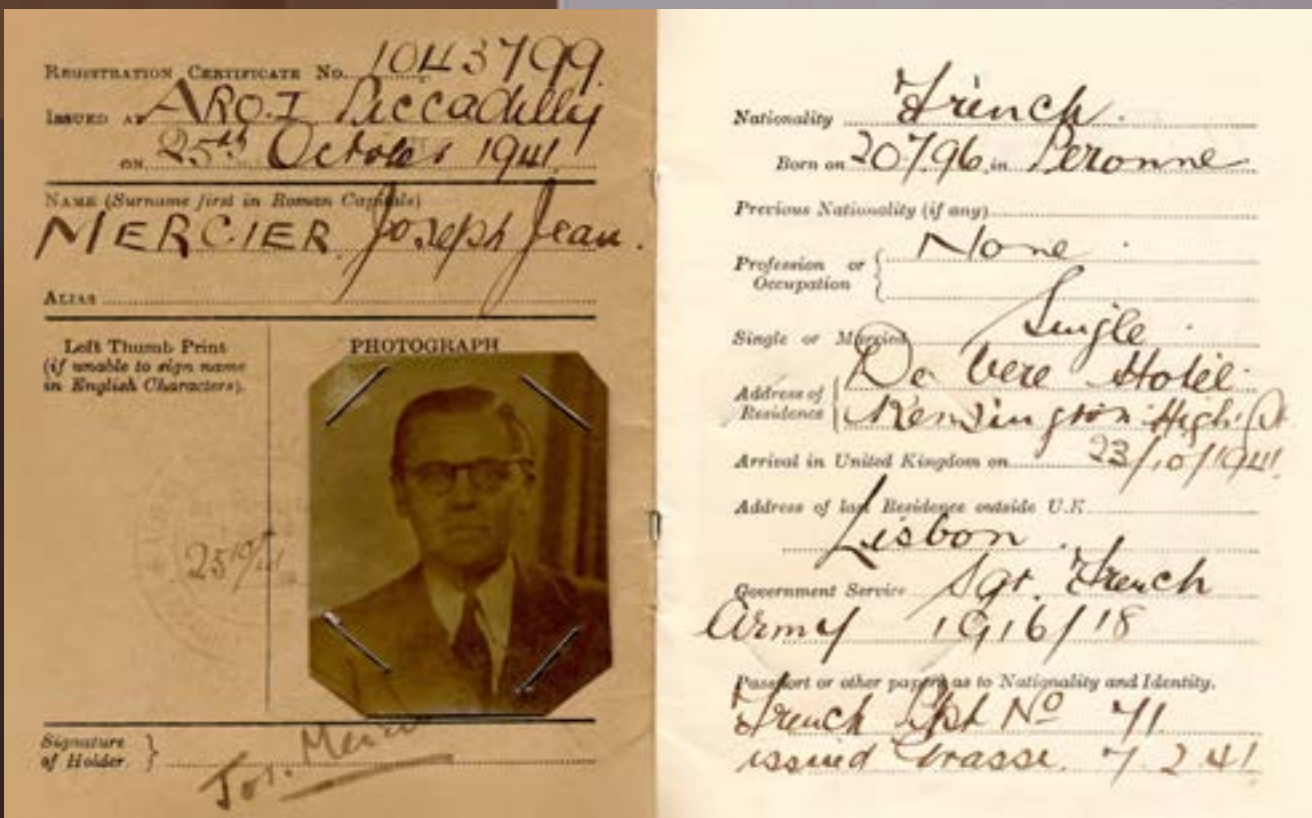 REGISTRATION CERTIFICATE No. 1043799.
ISSUED AT ARO.I Piccadilly
ON 25th October 1941
NAME (Surname first in Roman Capitals)
MERCIER Joseph Jean.
ALIAS
Left Thumb Print
(if unable to sign name
in English Characters).
PHOTOGRAPH
25/10/41
Signature
of Holder.
Jos. Mercier
Nationality French.
Born on 20796 in Peronne
Previous Nationality (if any)
Profession or
Occupation
None
Single or Married Single
Address of
Residence
De Vere Hotel
Kensington High St
Arrival in United Kingdom on 23/10/1941
Address of last Residence outside U.K
Lisbon.
Government Service Sgt. French
Army 1916/18
Passport or other papers as to Nationality and Identity.
French Ppt No 71
issued Grasse. 7 2 41